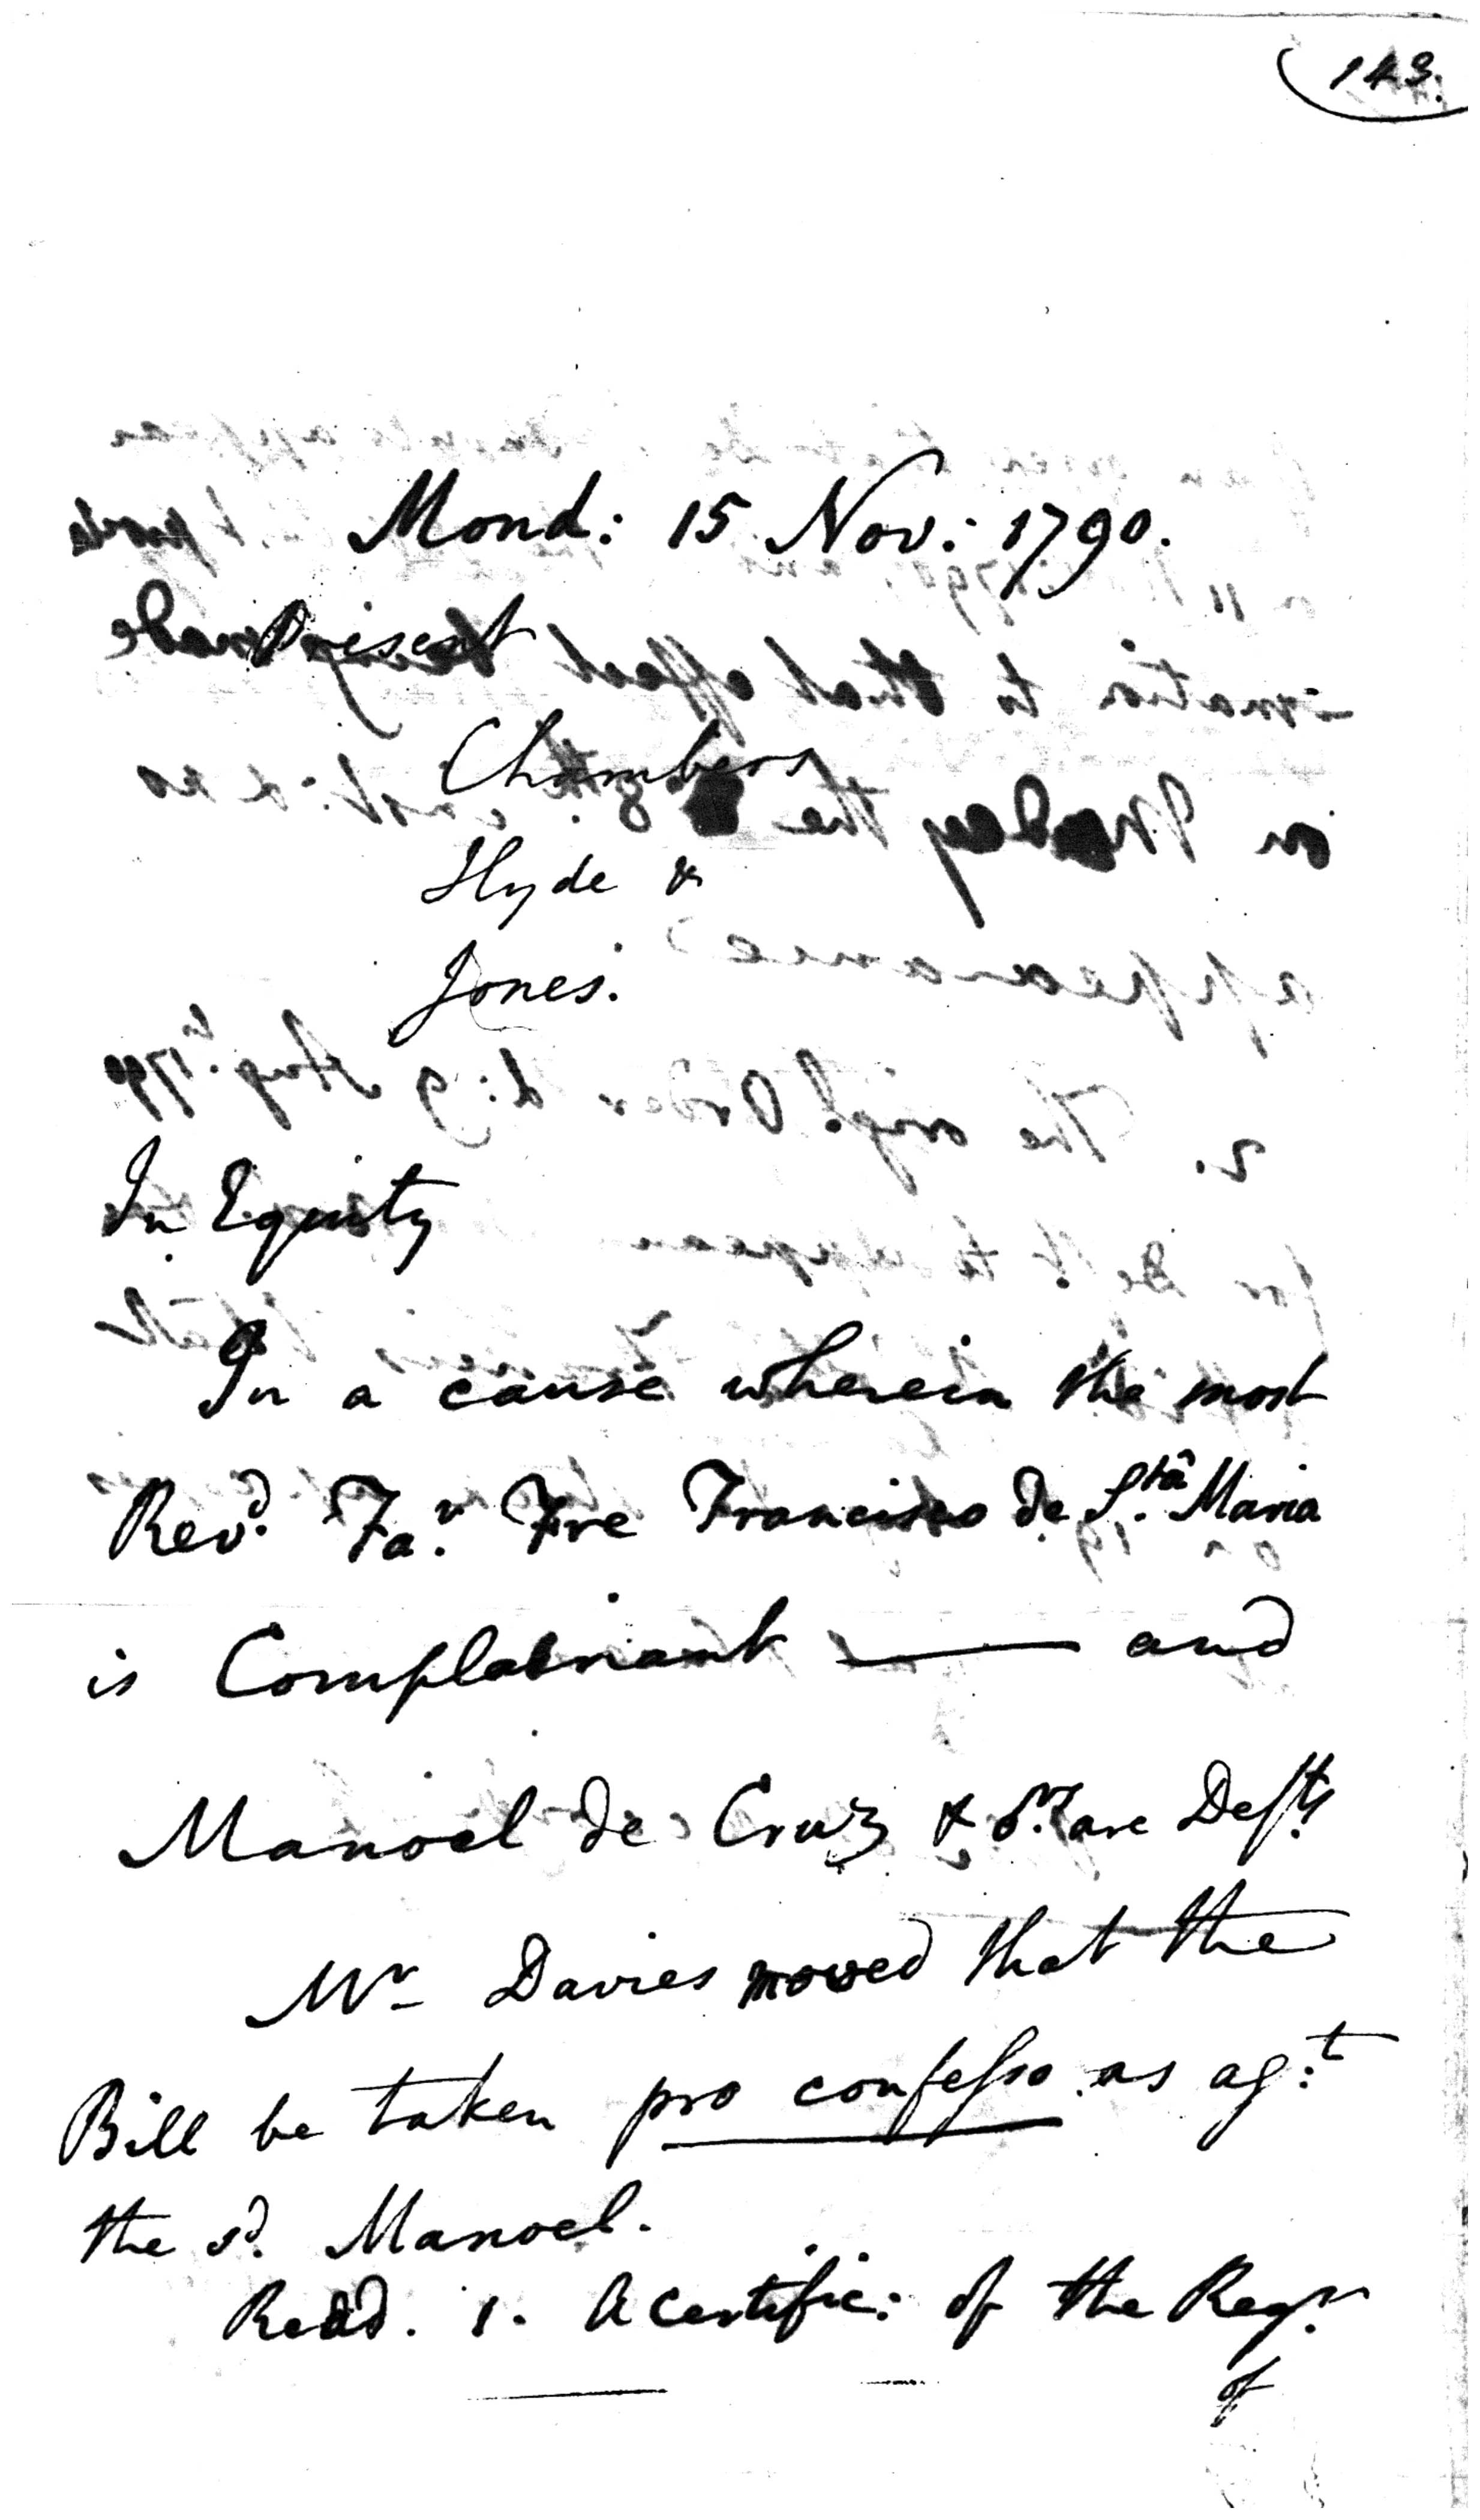 143.
Mond: 15 Nov: 1790.
Present
Chambers
Hyde &
Jones.
In Equity
In a cause wherein the most
Revd. Far. Fre Francisco de Sta. Maria
is Complainant — and
Manoel de Cruz & ors. are Defts.
Mr Davies moved that the
Bill be taken pro confesso as agt.
the sd. Manoel.
Read. 1. A certific: of the Regr.
of